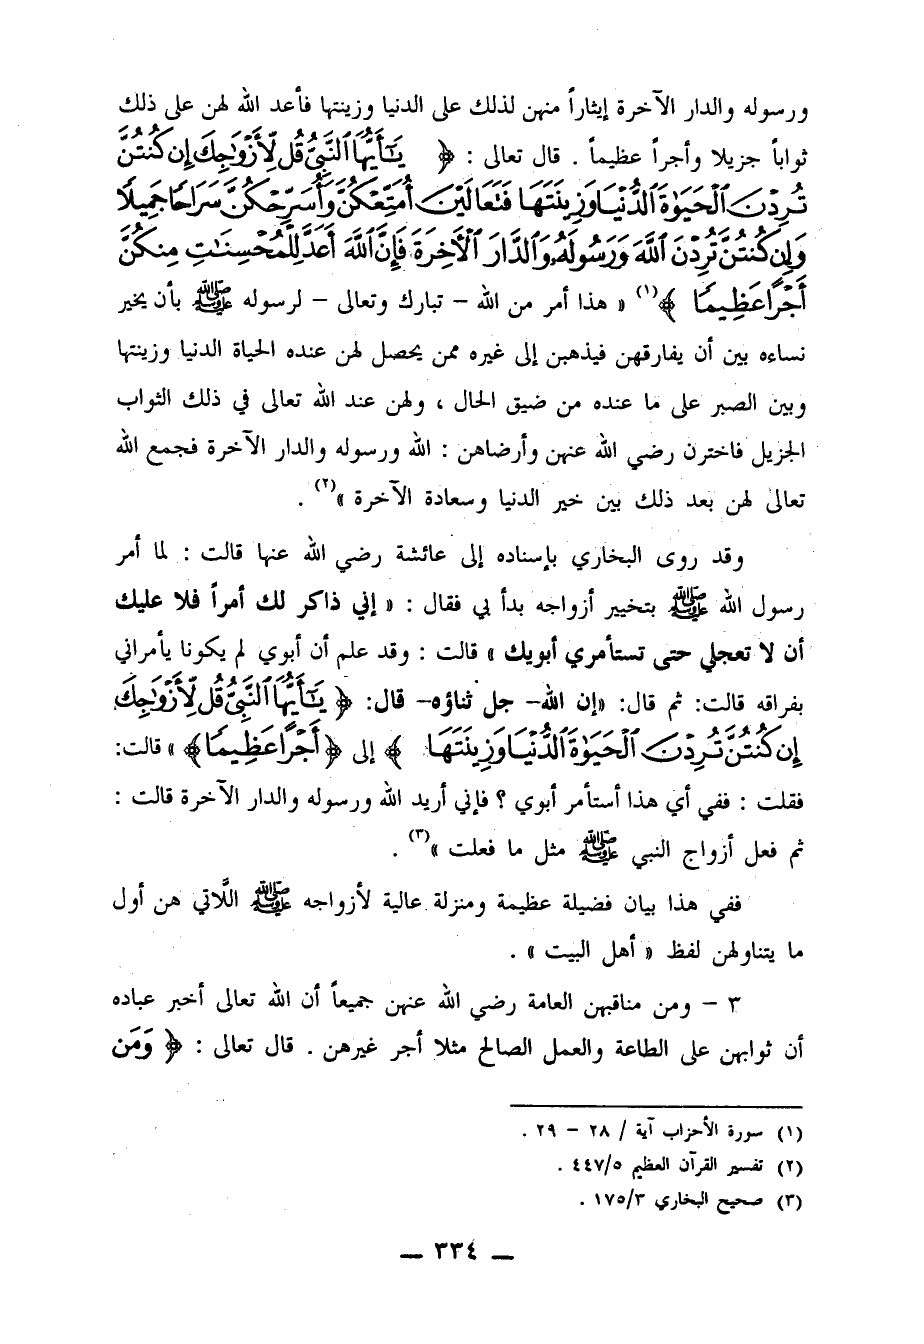 ورسوله والدار الآخرة إيثاراً منهن لذلك على الدنيا وزينتها فأعد الله لهن على ذلك
ثواباً جزيلا وأجراً عظيماً . قال تعالى : ﴿ يَٰٓأَيُّهَا ٱلنَّبِيُّ قُل لِّأَزْوَٰجِكَ إِن كُنتُنَّ
تُرِدْنَ ٱلْحَيَوٰةَ ٱلدُّنْيَا وَزِينَتَهَا فَتَعَالَيْنَ أُمَتِّعْكُنَّ وَأُسَرِّحْكُنَّ سَرَاحًا جَمِيلًا
وَإِن كُنتُنَّ تُرِدْنَ ٱللَّهَ وَرَسُولَهُۥ وَٱلدَّارَ ٱلْأٓخِرَةَ فَإِنَّ ٱللَّهَ أَعَدَّ لِلْمُحْسِنَٰتِ مِنكُنَّ
أَجْرًا عَظِيمًا ﴾(١) « هذا أمر من الله – تبارك وتعالى – لرسوله ﷺ بأن يخير
نساءه بين أن يفارقهن فيذهبن إلى غيره ممن يحصل لهن عنده الحياة الدنيا وزينتها
وبين الصبر على ما عنده من ضيق الحال ، ولهن عند الله تعالى في ذلك الثواب
الجزيل فاخترن رضي الله عنهن وأرضاهن : الله ورسوله والدار الآخرة فجمع الله
تعالى لهن بعد ذلك بين خير الدنيا وسعادة الآخرة »(٢) .
وقد روى البخاري بإسناده إلى عائشة رضي الله عنها قالت : لما أمر
رسول الله ﷺ بتخيير أزواجه بدأ بي فقال : « إني ذاكر لك أمراً فلا عليك
أن لا تعجلي حتى تستأمري أبويك » قالت : وقد علم أن أبوي لم يكونا يأمراني
بفراقه قالت: ثم قال: «إن الله– جل ثناؤه– قال: ﴿ يَٰٓأَيُّهَا ٱلنَّبِيُّ قُل لِّأَزْوَٰجِكَ
إِن كُنتُنَّ تُرِدْنَ ٱلْحَيَوٰةَ ٱلدُّنْيَا وَزِينَتَهَا ﴾ إلى ﴿ أَجْرًا عَظِيمًا ﴾ » قالت:
فقلت : ففي أي هذا أستأمر أبوي ؟ فإني أريد الله ورسوله والدار الآخرة قالت :
ثم فعل أزواج النبي ﷺ مثل ما فعلت »(٣) .
ففي هذا بيان فضيلة عظيمة ومنزلة عالية لأزواجه ﷺ اللَّاتي هن أول
ما يتناولهن لفظ « أهل البيت » .
٣ – ومن مناقبهن العامة رضي الله عنهن جميعاً أن الله تعالى أخبر عباده
أن ثوابهن على الطاعة والعمل الصالح مثلا أجر غيرهن . قال تعالى : ﴿ وَمَن
(١) سورة الأحزاب آية / ٢٨ – ٢٩ .
(٢) تفسير القرآن العظيم ٤٤٧/٥ .
(٣) صحيح البخاري ١٧٥/٣ .
— ٣٣٤ —